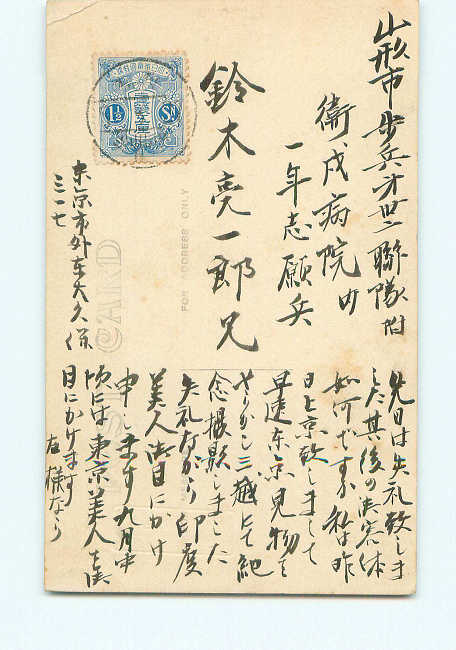 山形市歩兵才卅二聯隊附
衛戍病院内
一年志願兵
鈴木亮一郎兄
東京市外東大久保
三一七
先日は失礼致しま
した其後の御容体
如何ですか私は昨
日上京致しまして
早速東京見物を
やらかし三越にて紀
念撮影しました
失礼ながら印度
美人御目にかけ
申します九月中
頃には東京美人を御
目にかけます
左様なら
1½ Sn
CARD
FOR ADDRESS ONLY